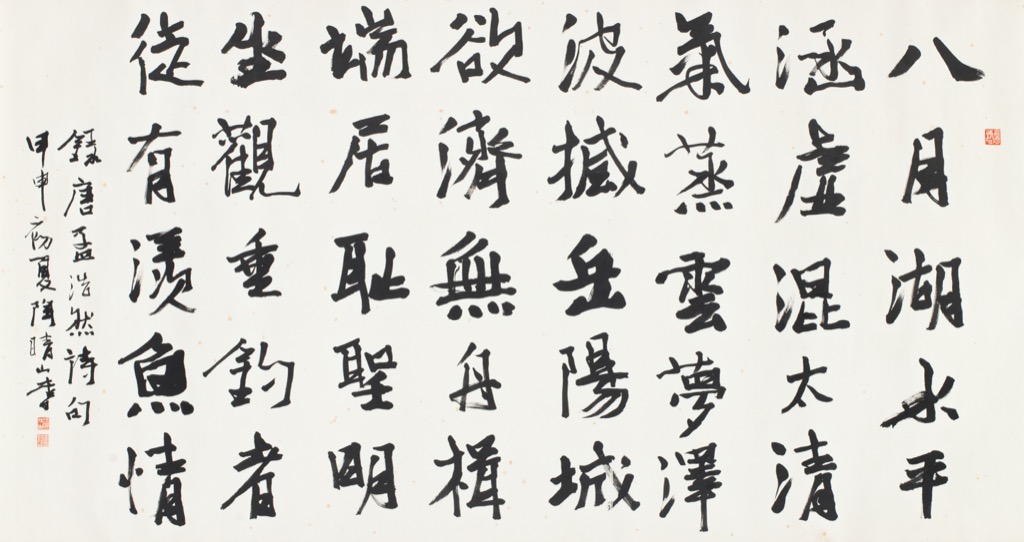 八月湖水平
涵虛混太清
氣蒸雲夢澤
波撼岳陽城
欲濟無舟楫
端居恥聖明
坐觀垂釣者
徒有羨魚情
錄唐孟浩然詩句
甲申初夏陶晴山書